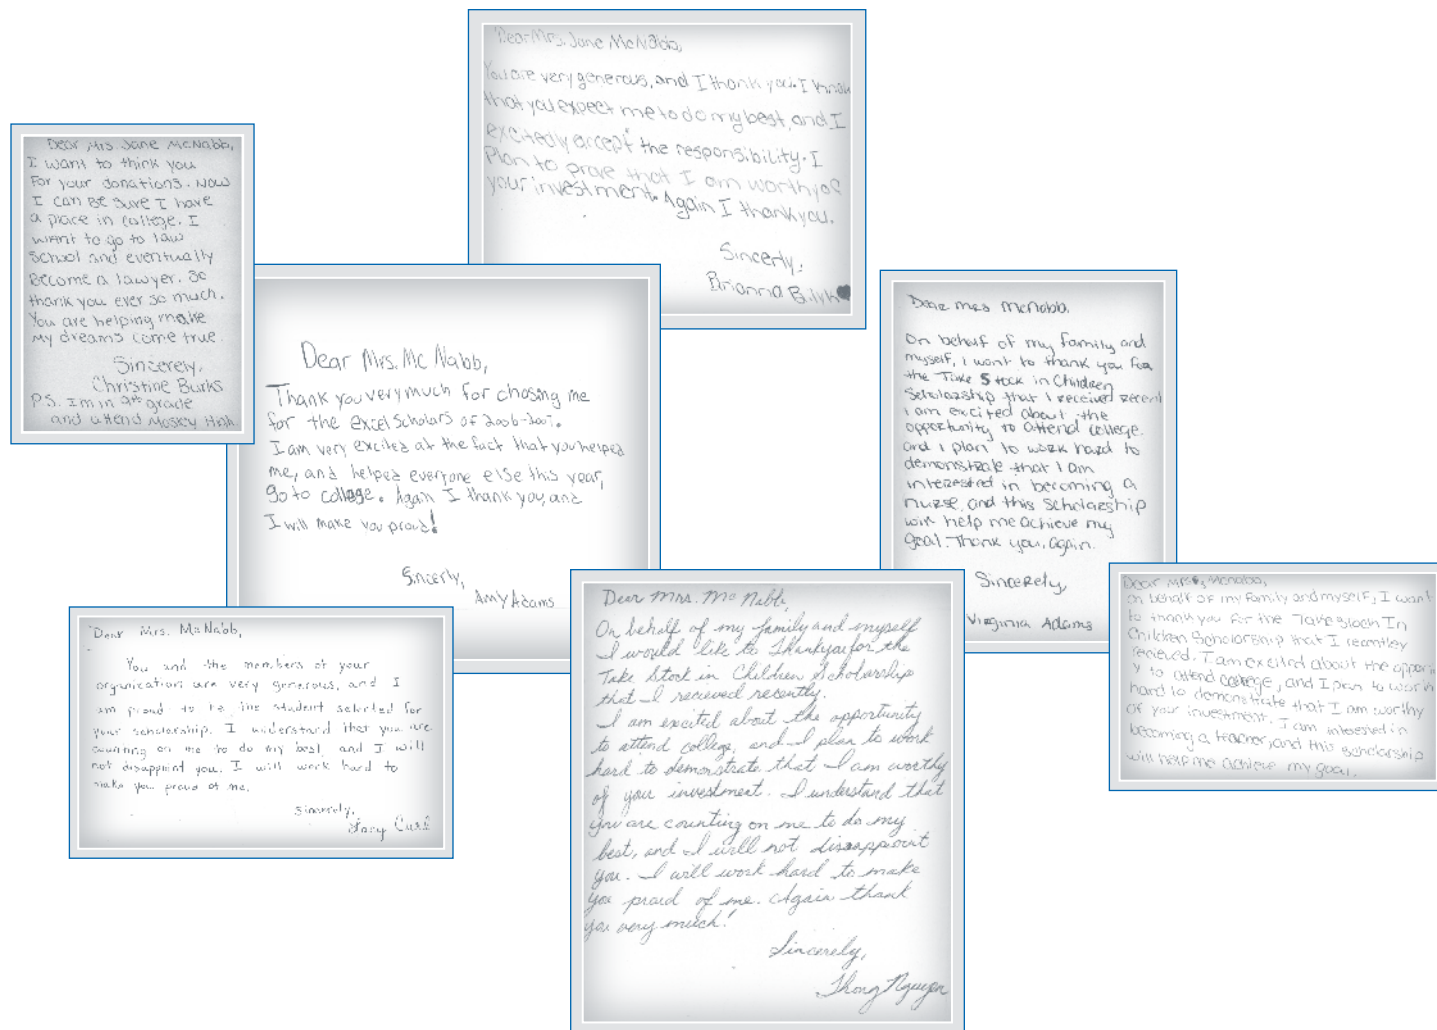 Dear Mrs. Jane McNabb,
I want to think you
For your donations. Now
I can be sure I have
a place in college. I
want to go to law
school and eventually
become a lawyer. So
thank you ever so much.
You are helping make
my dreams come true.
Sincerely,
Christine Burks
P.S. Im in 9th grade
and attend Mosley High.
Dear Mrs. Jane McNabb,
You are very generous, and I thank you. I know
that you expect me to do my best, and I
excitedly accept the responsibility. I
Plan to prove that I am worthy of
your investment. Again I thank you.
Sincerly,
Brianna
Dear Mrs. Mc Nabb,
Thank you very much for chosing me
for the excel Scholars of 2006-2007.
I am very excited at the fact that you helped
me, and helped everyone else this year,
go to college. Again I thank you, and
I will make you proud!
Sincerly,
Amy Adams
Dear Mrs McNabb,
On behalf of my family and
myself, i want to thank you for
the Take Stock in Children
Scholarship that I received recent
i am excited about the
opportunity to attend college.
and i plan to work hard to
demonstrate that I am
interested in becoming a
nurse, and this scholarship
will help me achieve my
goal. Thank you, again.
Sincerely,
Virginia Adams
Dear Mrs. McNabb,
You and the members of your
organization are very generous, and I
am proud to be the student selected for
your scholarship. I understand that you are
counting on me to do my best, and I will
not disappoint you. I will work hard to
make you proud of me.
Sincerely,
Stacy
Dear Mrs. Mc Nabb,
On behalf of my family and myself
I would like to thank you for the
Take Stock in Children Scholarship
that I recieved recently.
I am excited about the opportunity
to attend college, and I plan to work
hard to demonstrate that I am worthy
of your investment. I understand that
you are counting on me to do my
best, and I will not disappoint
you. I will work hard to make
you proud of me. Again thank
you very much!
Sincerely,
Thong Nguyen
Dear Mrs. McNabb,
On behalf of my family and myself, I want
to thank you for the Take Stock In
Children Scholarship that I recently
recieved. I am excited about the opportunit
y to attend college, and I plan to work
hard to demonstrate that I am worthy
of your investment. I am interested in
becoming a teacher, and this scholarship
will help me achieve my goal.